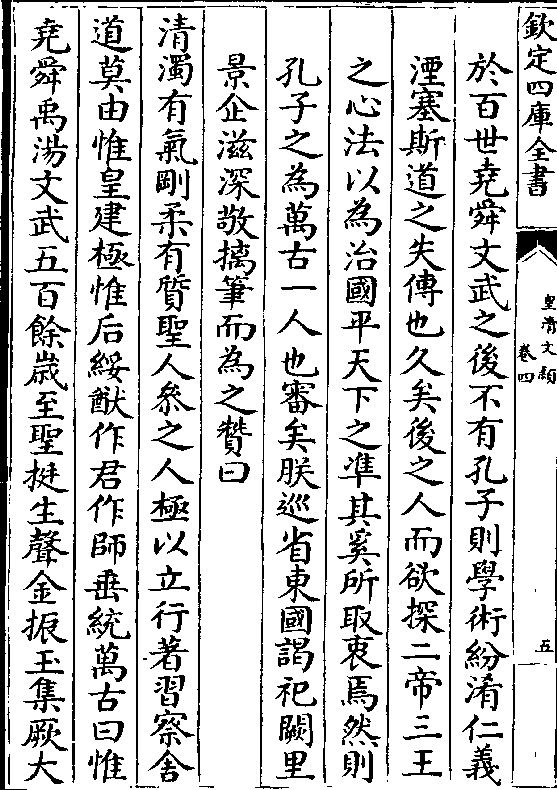 欽定四庫全書
皇清文穎
卷四
五
於百世堯舜文武之後不有孔子則學術紛淆仁義
湮塞斯道之失傳也久矣後之人而欲探二帝三王
之心法以為治國平天下之準其奚所取衷焉然則
孔子之為萬古一人也審矣朕巡省東國謁祀闕里
景企滋深敬摛筆而為之贊曰
清濁有氣剛柔有質聖人參之人極以立行著習察舍
道莫由惟皇建極惟后綏猷作君作師垂統萬古曰惟
堯舜禹湯文武五百餘歲至聖挺生聲金振玉集厥大